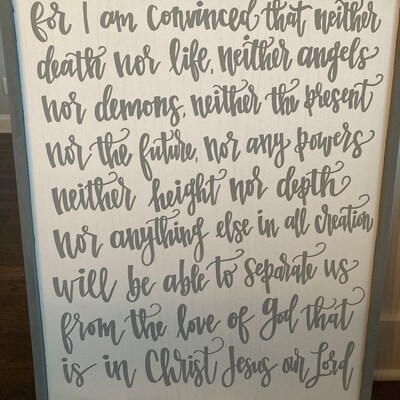 for I am convinced that neither
death nor life, neither angels
nor demons, neither the present
nor the future, nor any powers
neither height nor depth
nor anything else in all creation
will be able to separate us
from the love of God that
is in Christ Jesus our Lord